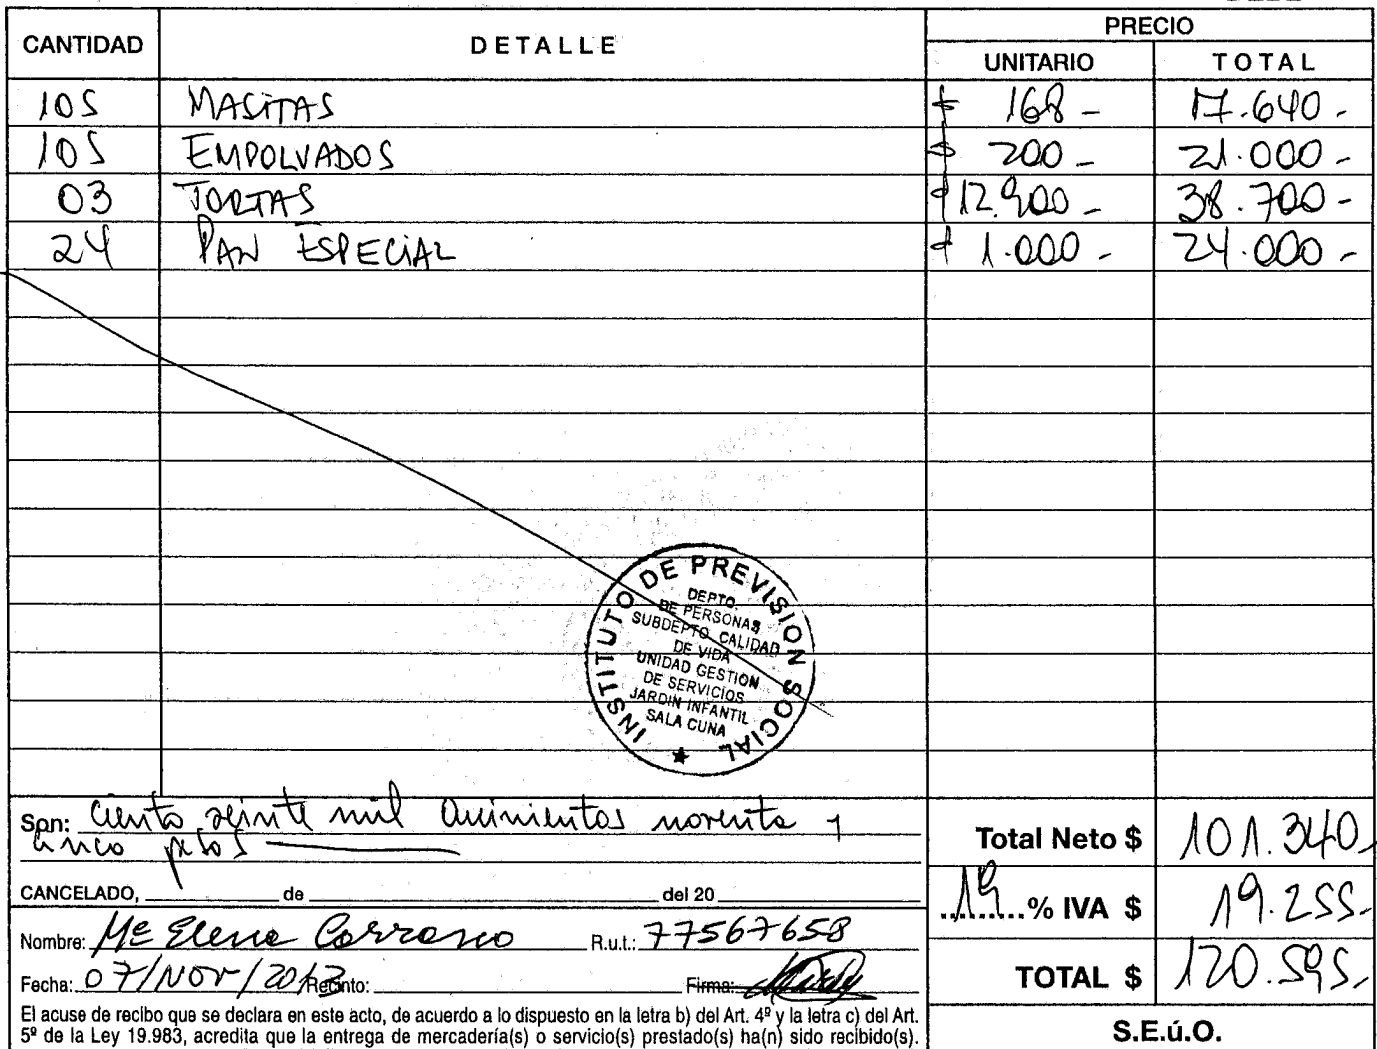 CANTIDAD DETALLE PRECIO
UNITARIO TOTAL
105 MASITAS $ 168- 17.640.-
105 EMPOLVADOS $ 200- 21.000-
03 TORTAS $12.900- 38.700-
24 PAN ESPECIAL $ 1.000- 24.000-
INSTITUTO DE PREVISION SOCIAL
DEPTO.
DE PERSONAS
SUBDEPTO. CALIDAD
DE VIDA
UNIDAD GESTION
DE SERVICIOS
JARDIN INFANTIL
SALA CUNA
Son: Ciento veinte mil Quinientos noventa y
cinco pesos
Total Neto $ 101.340.-
CANCELADO, de del 20
19 % IVA $ 19.255.-
Nombre: Mª Elena Carrasco R.u.t.: 77567658
Fecha: 07/NOV/2013 Recinto: Firma:
TOTAL $ 120.595.-
El acuse de recibo que se declara en este acto, de acuerdo a lo dispuesto en la letra b) del Art. 4º y la letra c) del Art.
5º de la Ley 19.983, acredita que la entrega de mercadería(s) o servicio(s) prestado(s) ha(n) sido recibido(s).
S.E.ú.O.